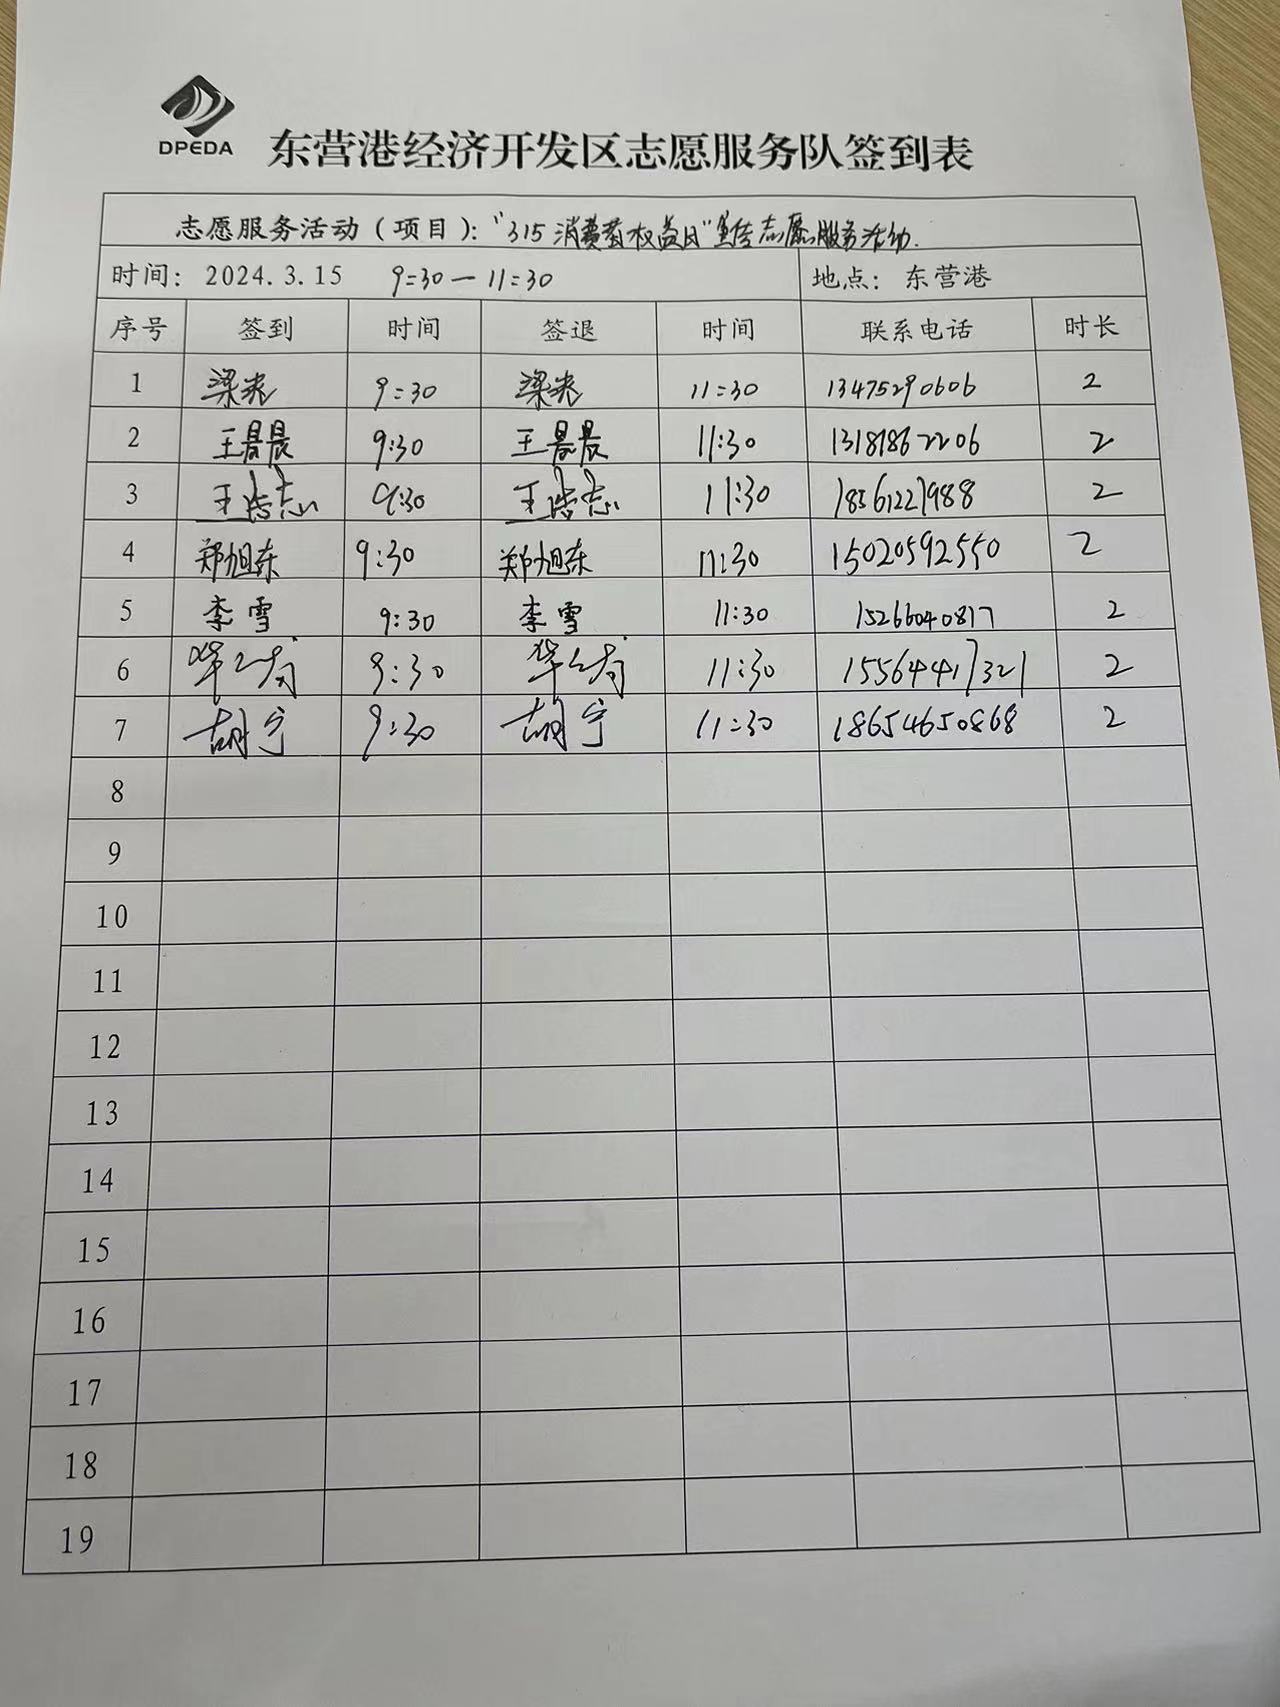 DPEDA
东营港经济开发区志愿服务队签到表
志愿服务活动（项目）：“315消费者权益日”宣传志愿服务活动.
时间：2024.3.15 9:30—11:30 地点：东营港
序号 签到 时间 签退 时间 联系电话 时长
1 梁光 9:30 梁光 11:30 13475290606 2
2 王晨晨 9:30 王晨晨 11:30 13181862206 2
3 王浩志 9:30 王浩志 11:30 18561227988 2
4 郑旭东 9:30 郑旭东 11:30 15020592550 2
5 李雪 9:30 李雪 11:30 15266040817 2
6 9:30 11:30 15564417321 2
7 胡宁 9:30 胡宁 11:30 18654650868 2
8
9
10
11
12
13
14
15
16
17
18
19